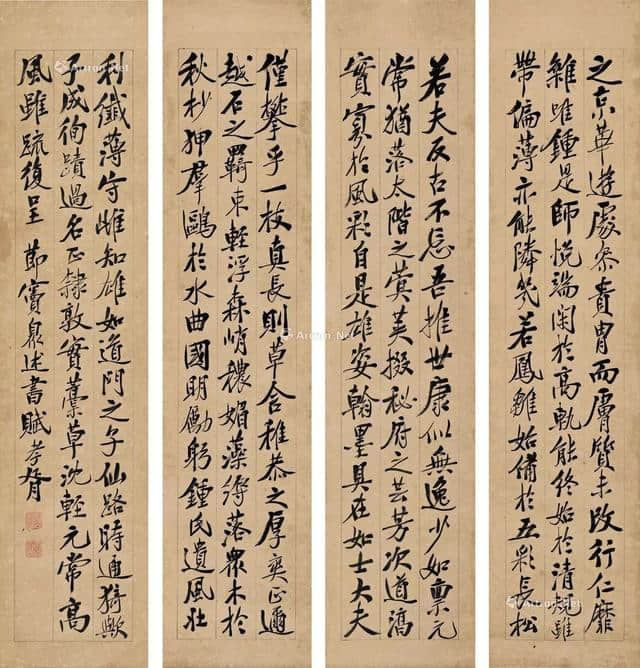 之京華遊處參貴胄而膚質未改行仁靡
雜雖鍾是師悅端閑於高軌能終始於清規雖
帶偏薄亦能隣幾若鳳雛始備於五彩長松
若夫反古不忘吾推世康似無逸少如稟元
常猶落太階之蓂莢掇秘府之芸芳次道滔
實寡於風彩自是雄姿翰墨具在如士大夫
僅攀乎一枝真長則草含稚恭之厚爽正邇
越石之羈束輕浮森峭穠媚藻縟落衆木於
秋杪狎群鷗於水曲國明勵躬鍾氏遺風壯
利纖薄守雌知雄如道門之子仙路時通猗歟
子成徇蹟過名正隸敦實藁草沈輕元常高
風雖疏復呈 節竇臮述書賦 孝胥
Artron.Net